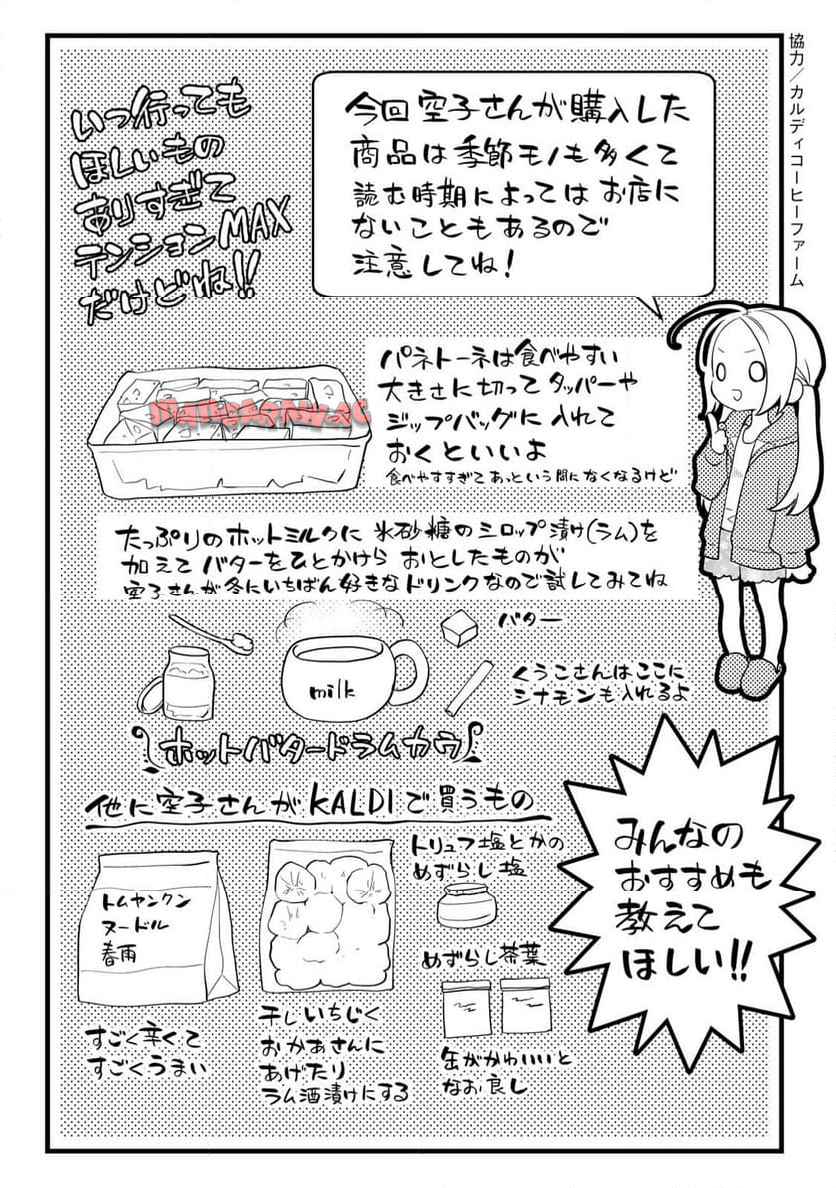 協力／カルディコーヒーファーム
今回空子さんが購入した
商品は季節モノも多くて
読む時期によってはお店に
ないこともあるので
注意してね！
いつ行っても
ほしいもの
ありすぎて
テンションMAX
だけどね!!
パネトーネは食べやすい
大きさに切ってタッパーや
ジップバッグに入れて
おくといいよ
食べやすすぎてあっという間になくなるけど
たっぷりのホットミルクに氷砂糖のシロップ漬け(ラム)を
加えてバターをひとかけらおとしたものが
空子さんが冬にいちばん好きなドリンクなので試してみてね
バター
milk
くうこさんはここに
シナモンも入れるよ
ホットバタードラムカウ
他に空子さんがKALDIで買うもの
みんなの
おすすめも
教えて
ほしい!!
トムヤンクン
ヌードル
春雨
すごく辛くて
すごくうまい
干しいちじく
おかあさんに
あげたり
ラム酒漬けにする
トリュフ塩とかの
めずらし塩
めずらし茶葉
缶がかわいいと
なお良し